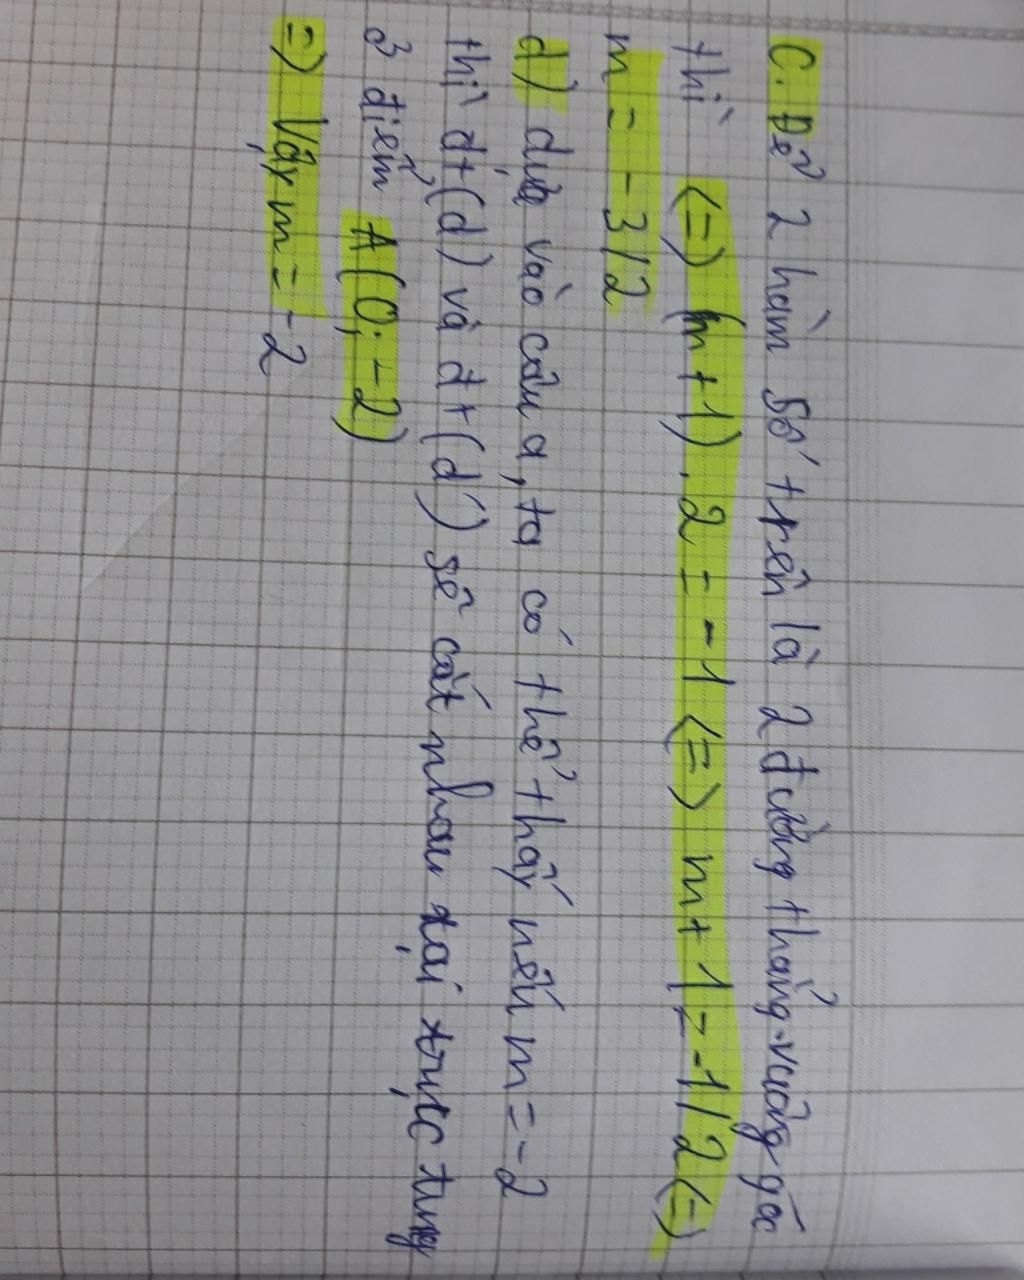 C. Để 2 hàm số trên là 2 đường thẳng vuông góc
thì (=) (m+1).2 = -1 (=) m+1 = -1/2 (=)
m = -3/2
d) dựa vào câu a, ta có thể thấy nếu m = -2
thì đt(d) và đt(d') sẽ cắt nhau tại trục tung
ở điểm A(0; -2)
=) Vậy m = -2